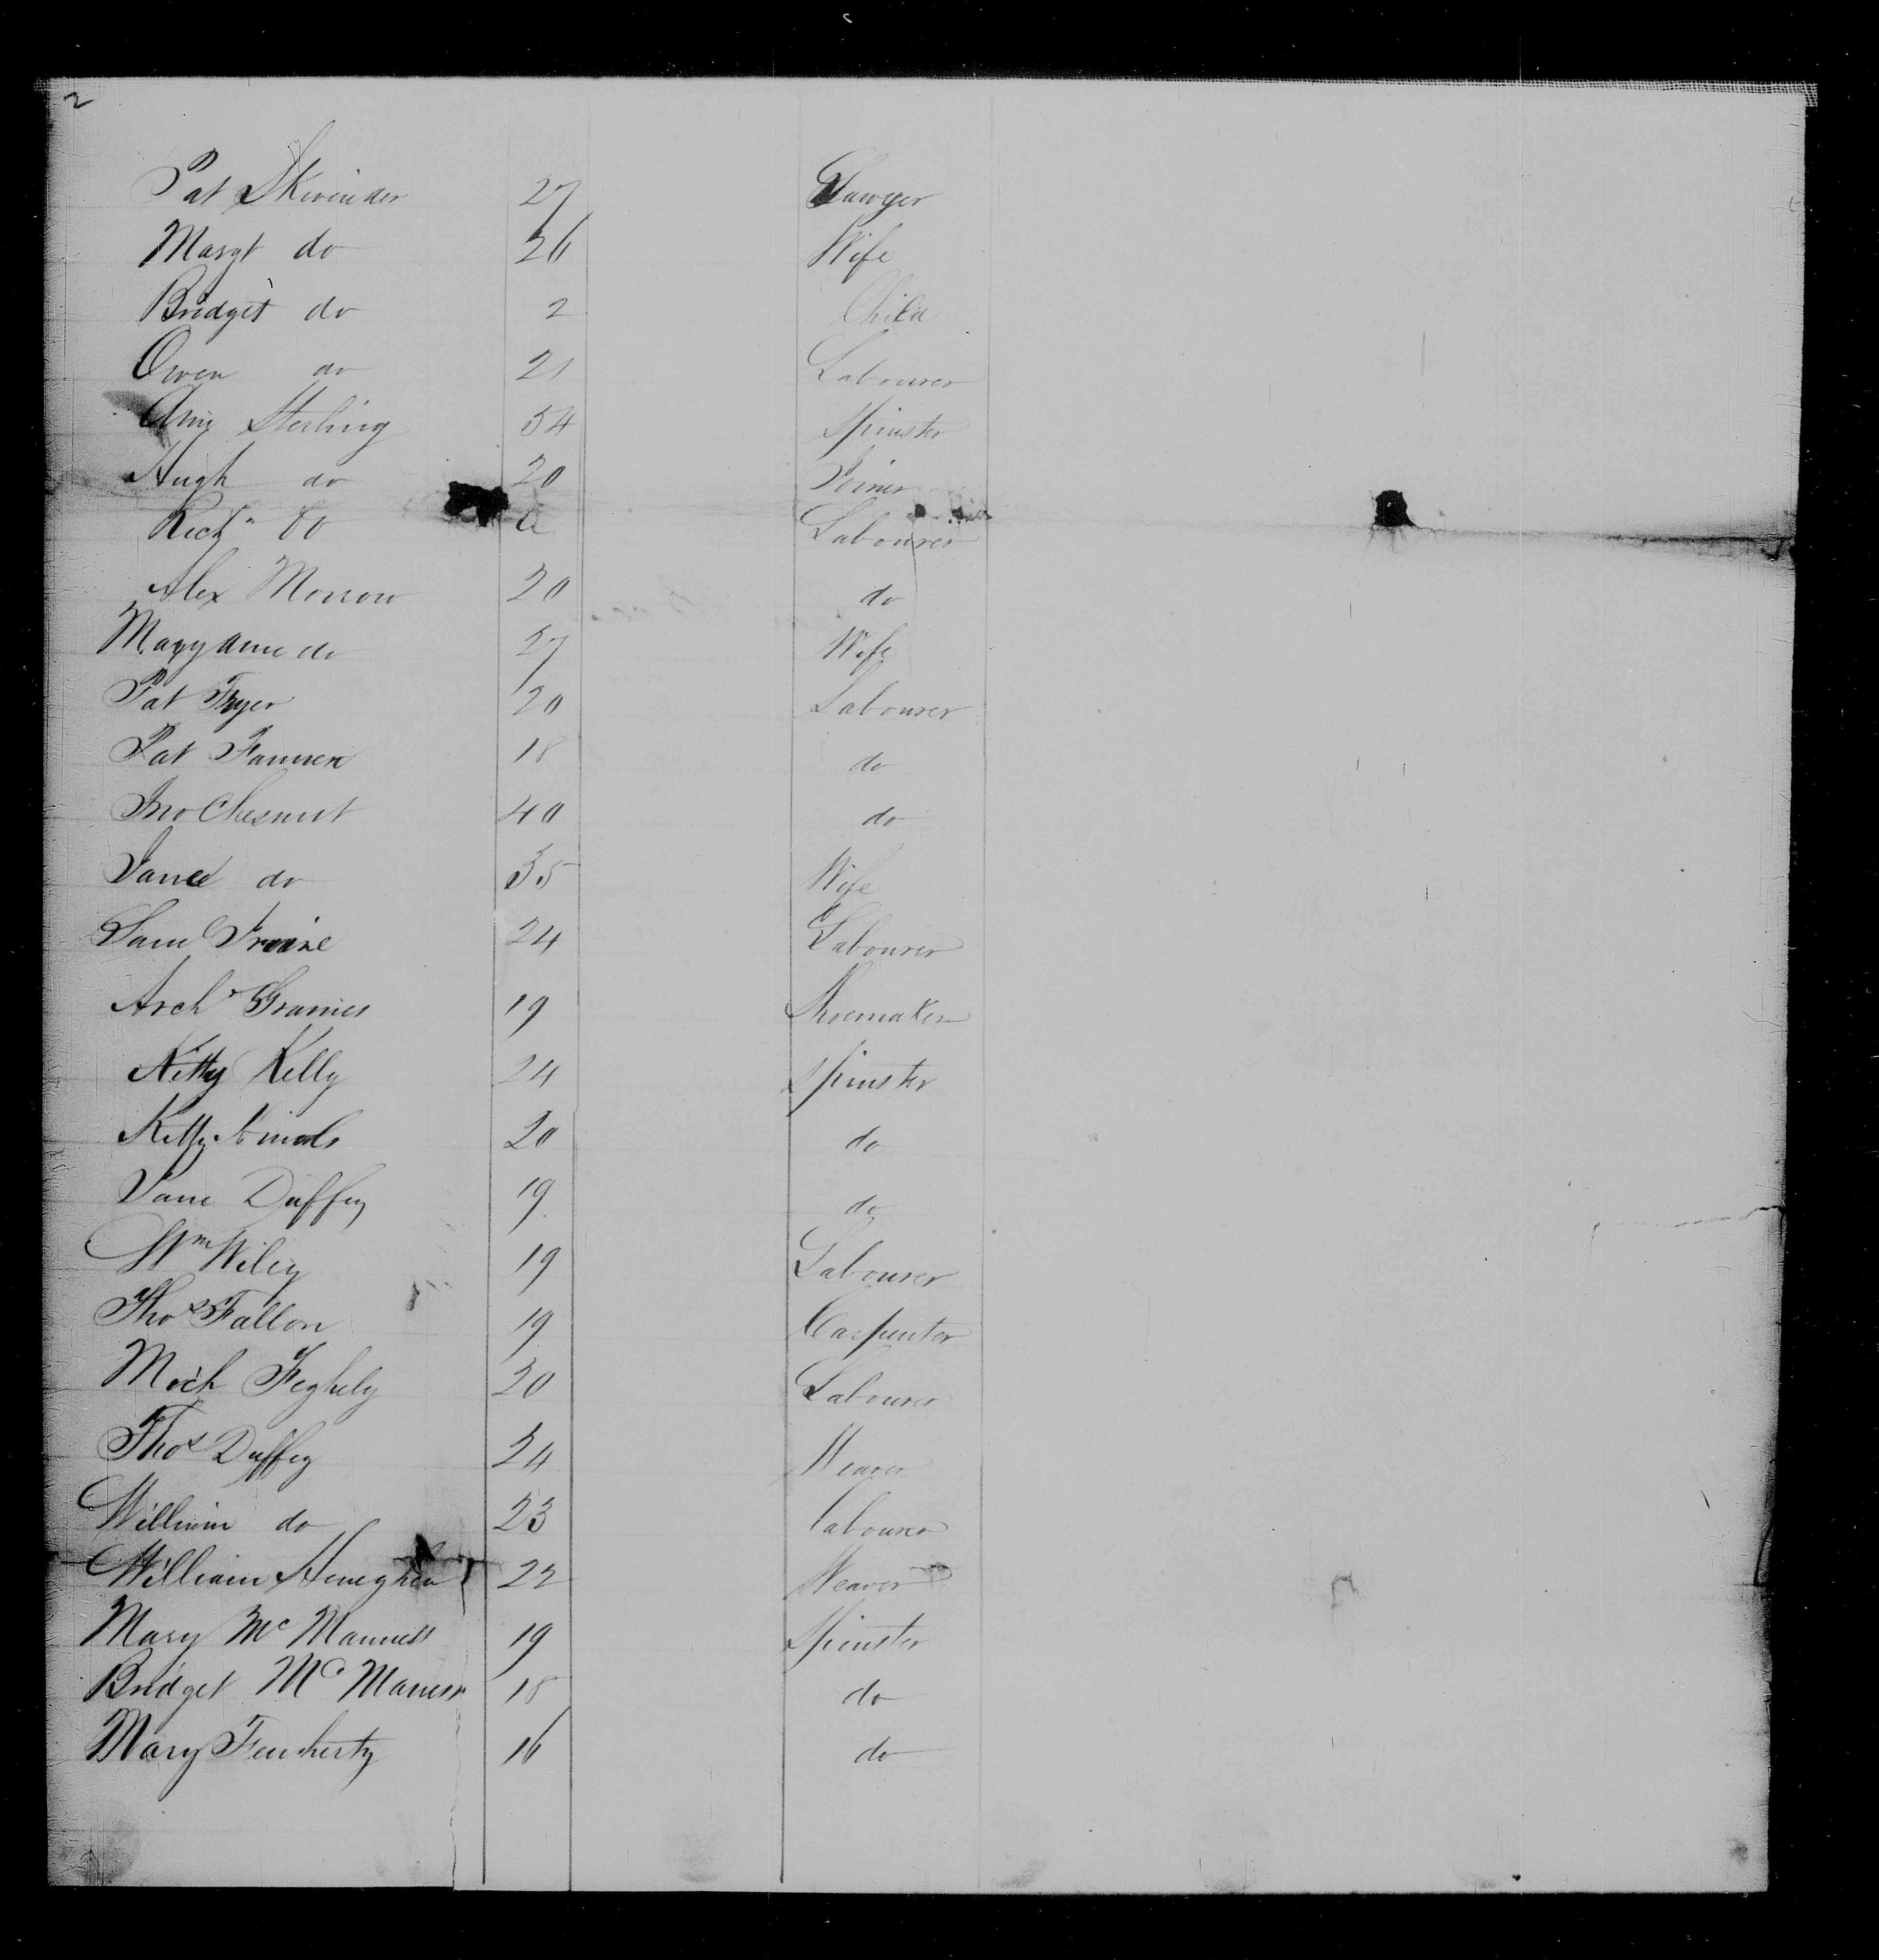 2
Pat Skivinder 27 Sawyer
Margt do 26 Wife
Bridget do 2 Child
Owen do 21 Labourer
Ann Sterling 54 Spinster
Hugh do 20 Joiner
do Labourer
Alex Morrow 20 do
Mary Ann do 27 Wife
Pat Fryer 20 Labourer
Pat Fannen 18 do
Jno Chesnut 40 do
Jane do 35 Wife
Saml Irvine 24 Labourer
Archd 19 Shoemaker
Kitty Kelly 24 Spinster
Kitty 20 do
Jane Duffey 19 do
Wm Wiley 19 Labourer
Thos Fallon 19 Carpenter
Mich Feghely 20 Labourer
Thos Duffey 24 Weaver
William do 23 labourer
William Heneghen 22 Weaver
Mary Mc Manness 19 Spinster
Bridget Mc 18 do
Mary 16 do